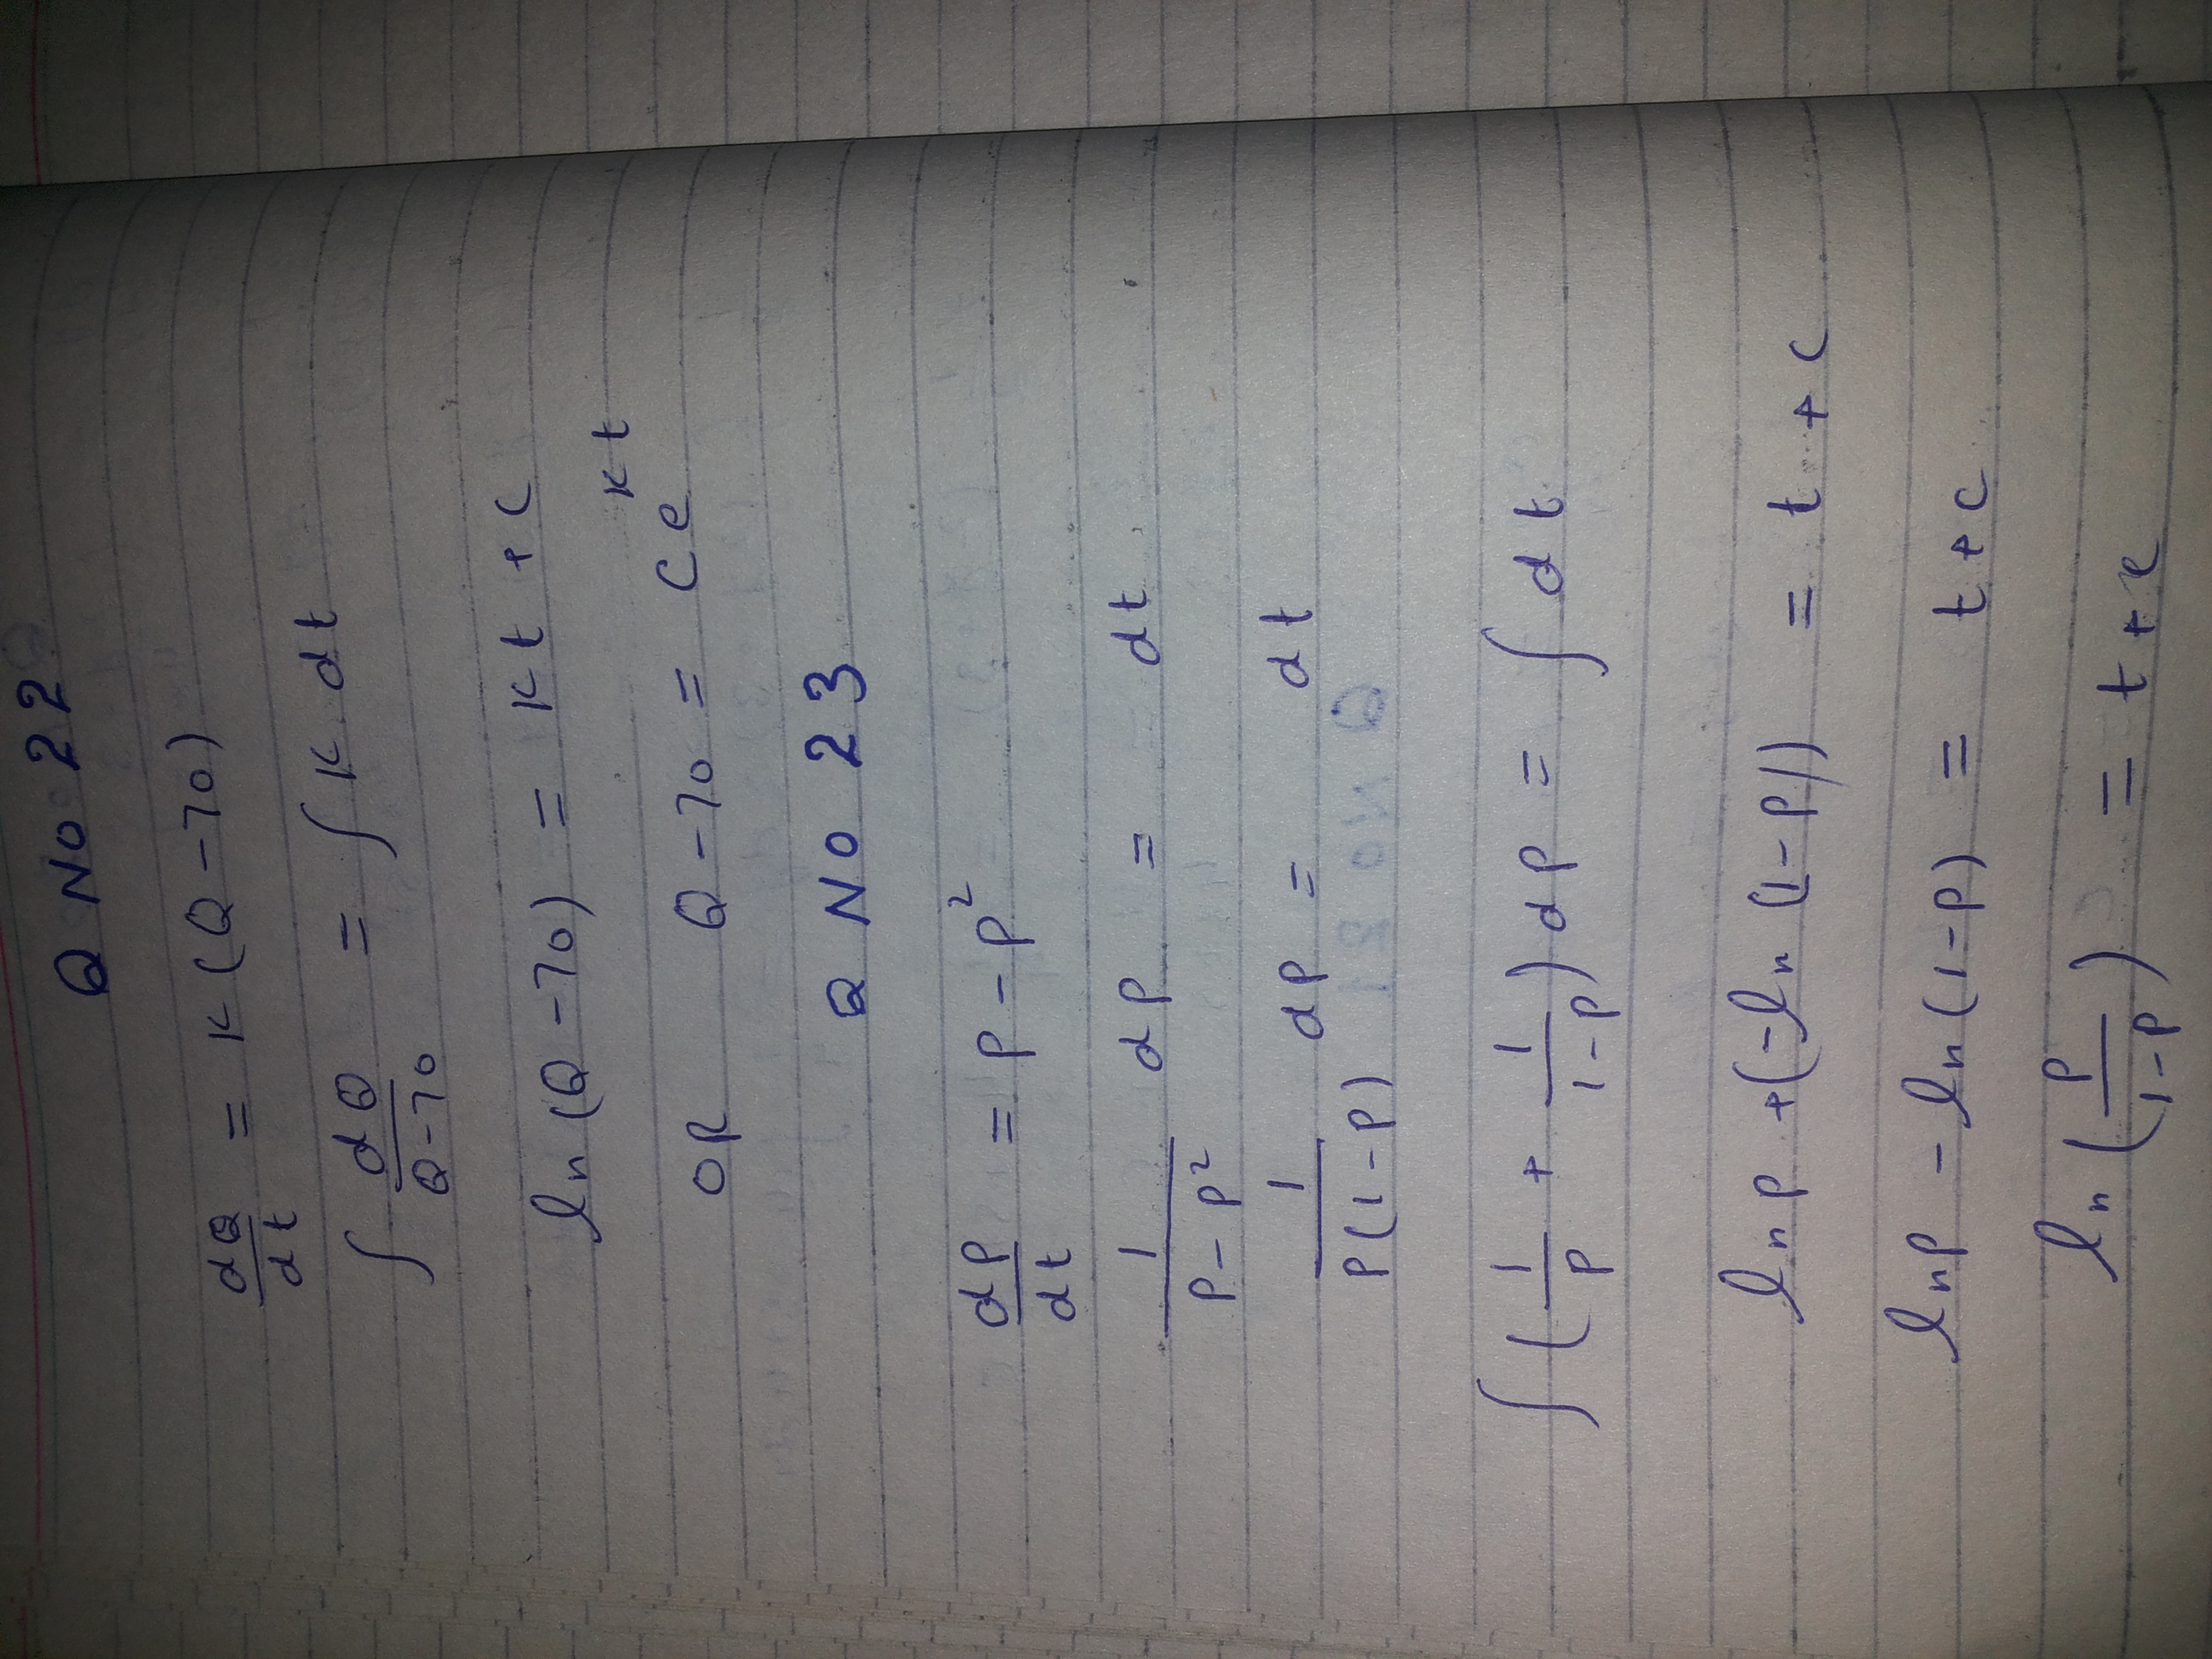 Q NO 22
dQ/dt = K(Q-70)
∫ dQ/(Q-70) = ∫ K dt
ln(Q-70) = Kt + c
OR Q-70 = Ce^Kt
Q NO 23
dP/dt = P - P²
1/(P-P²) dP = dt
1/(P(1-P)) dP = dt
∫(1/P + 1/(1-P)) dP = ∫ dt
ln P + (-ln (1-P)) = t + c
ln P - ln(1-P) = t + c
ln(P/(1-P)) = t + c